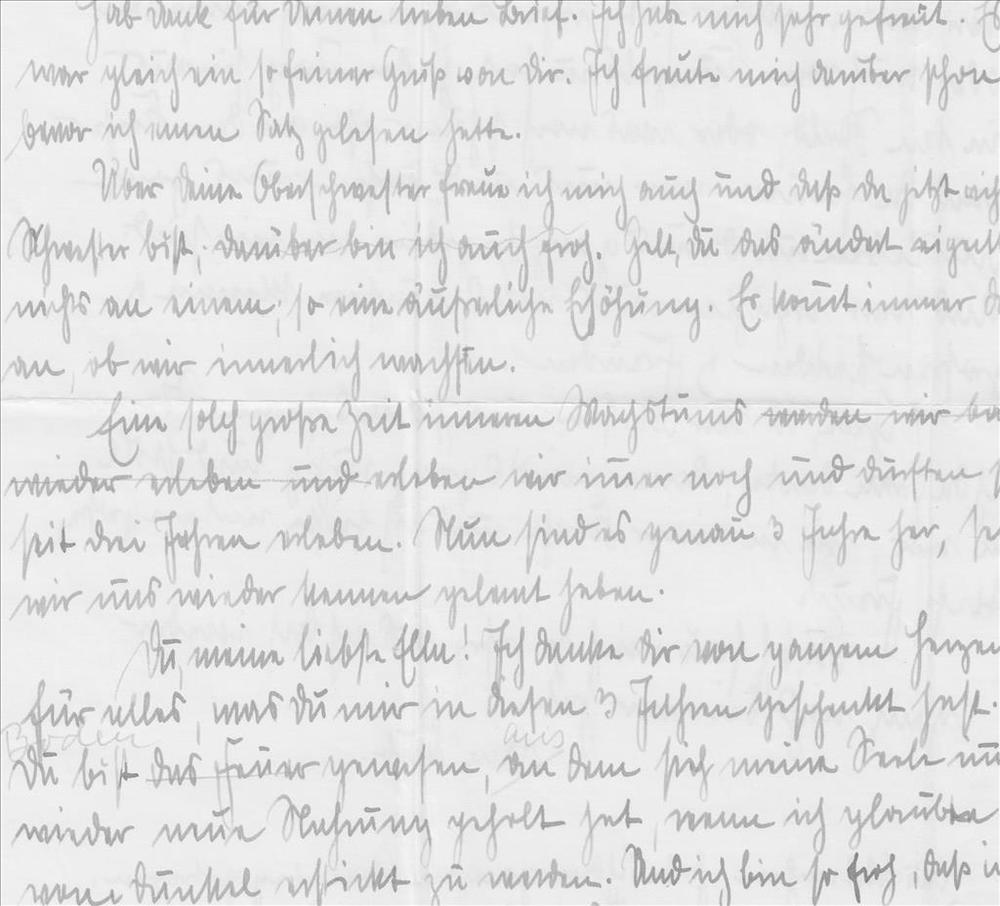 Hab Dank für Deinen lieben Brief. Ich habe mich sehr gefreut. Es
war gleich ein so feiner Gruß von Dir. Ich freute mich darüber schon
bevor ich einen Satz gelesen hatte.
Über Deine Oberschwester freue ich mich auch und daß du jetzt
Schwester bist, darüber bin ich auch froh. Gelt, du das ändert
nichts an einem, so eine äußerliche Erhöhung. Es kommt immer
an, ob wir innerlich wachsen.
Eine solch große Zeit inneren Wachstums werden wir
wieder erleben und erleben wir immer noch und durften
seit drei Jahren erleben. Nun sind es genau 3 Jahre her,
wir uns wieder kennen gelernt haben.
Du, meine liebste Ella! Ich danke Dir von ganzem Herzen
für alles, was Du mir in diesen 3 Jahren geschenkt hast.
Boden aus
Du bist das Feuer gewesen, an dem sich meine Seele
wieder neue Nahrung geholt hat, wenn ich glaubte
vom Dunkel erstickt zu werden. Und ich bin so froh, daß